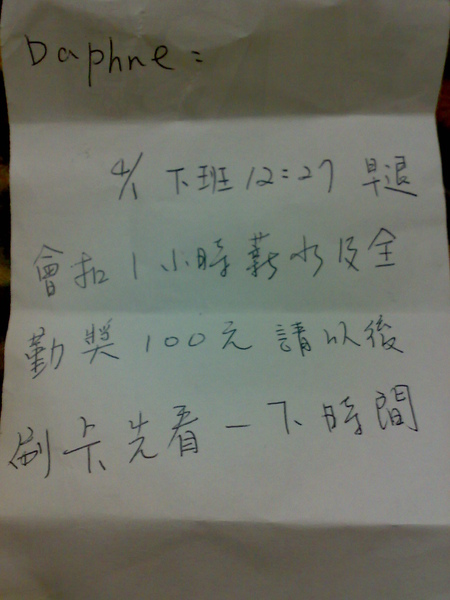 Daphne:
4/1 下班12:27 早退
會扣1小時薪水及全
勤獎100元 請以後
刷卡先看一下時間